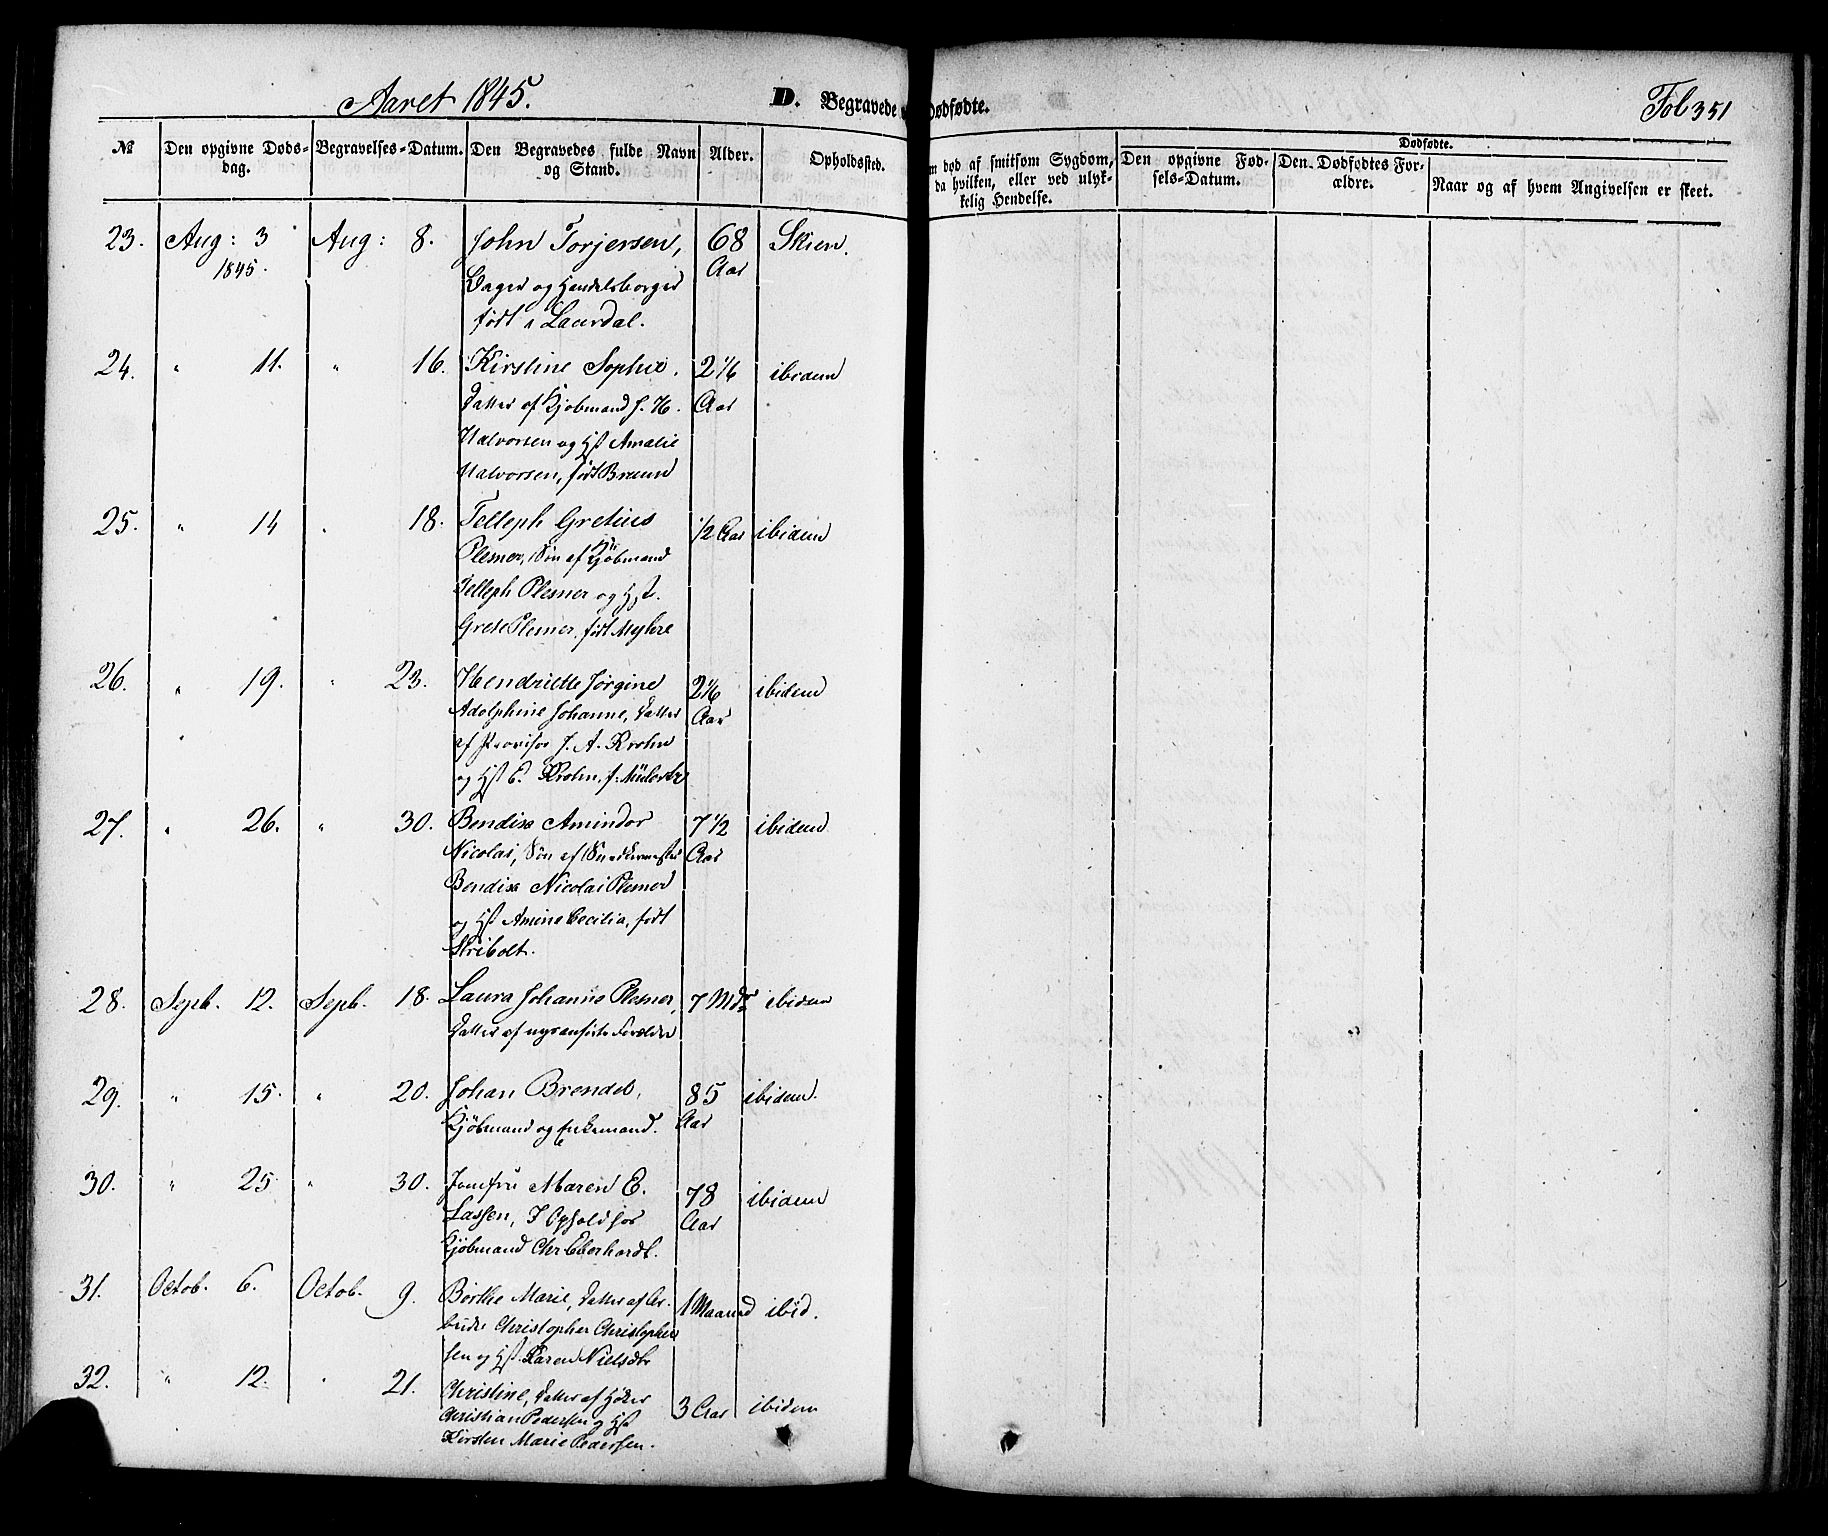 Aaret 1845.
D. Begravede
Dødfødte.
Fol 351
№
Den opgivne Døds-
dag.
Begravelses-Datum.
Den Begravedes fulde Navn
og Stand.
Alder.
Opholdssted.
død af smitsom Sygdom,
da hvilken, eller ved ulyk-
kelig Hendelse.
Dødfødte.
Den opgivne Fød-
sels-Datum.
Den Dødfødtes For-
ældre.
Naar og af hvem Angivelsen er skeet.
23. Aug: 3 Aug: 8. John Torjersen, 68 Skien.
1845. Bager og Handelsborger Aar
født i Laurdal.
24. " 11. " 16. Kirstine Sophie, 2 1/6 ibidem
Datter af Kjøbmand J. H. Aar
Halvorsen og Hst Amalie
Halvorsen, født Bruun
25. " 14 " 18. Telleph Gretius 1/2 Aar ibidem
Plesner, Søn af Kjøbmand
Telleph Plesner og Hst.
Grete Plesner, født Myhre
26. " 19. " 23. Hendriette Jørgine 2 1/6 ibidem
Adolphine Johanne, Datter Aar
af Provisor J. A. Krohn
og Hst E. Krohn, f:
27. " 26. " 30. Bendix Amindor 7 1/2 ibidem
Nicolai, Søn af Snedkermester Aar
Bendix Nicolai Plesner
og Hst Amine Cecilia, født
Stribolt.
28. Septb. 12. Septb. 18. Laura Johanne Plesner, 7 Mdr ibidem
Datter af nysanførte Forældre
29. " 15. " 20. Johan Brendel, 85 ibidem.
Kjøbmand og Enkemand. Aar
30. " 25. " 30. Jomfru Maren E. 78 ibidem
Lassen, I Ophold hos Aar
Kjøbmand Chr Eberhardt.
31. Octob. 6. Octob. 9. Børthe Marie, Datter af Ar- 1 Maaned ibid.
beider Christopher Christopher
sen og Hst. Karen Nielsdtr
32. " 12. " 21. Christine, Datter af Høker 3 Aar ibidem
Christian Pedersen og Hst
Kirsten Marie Pedersen.